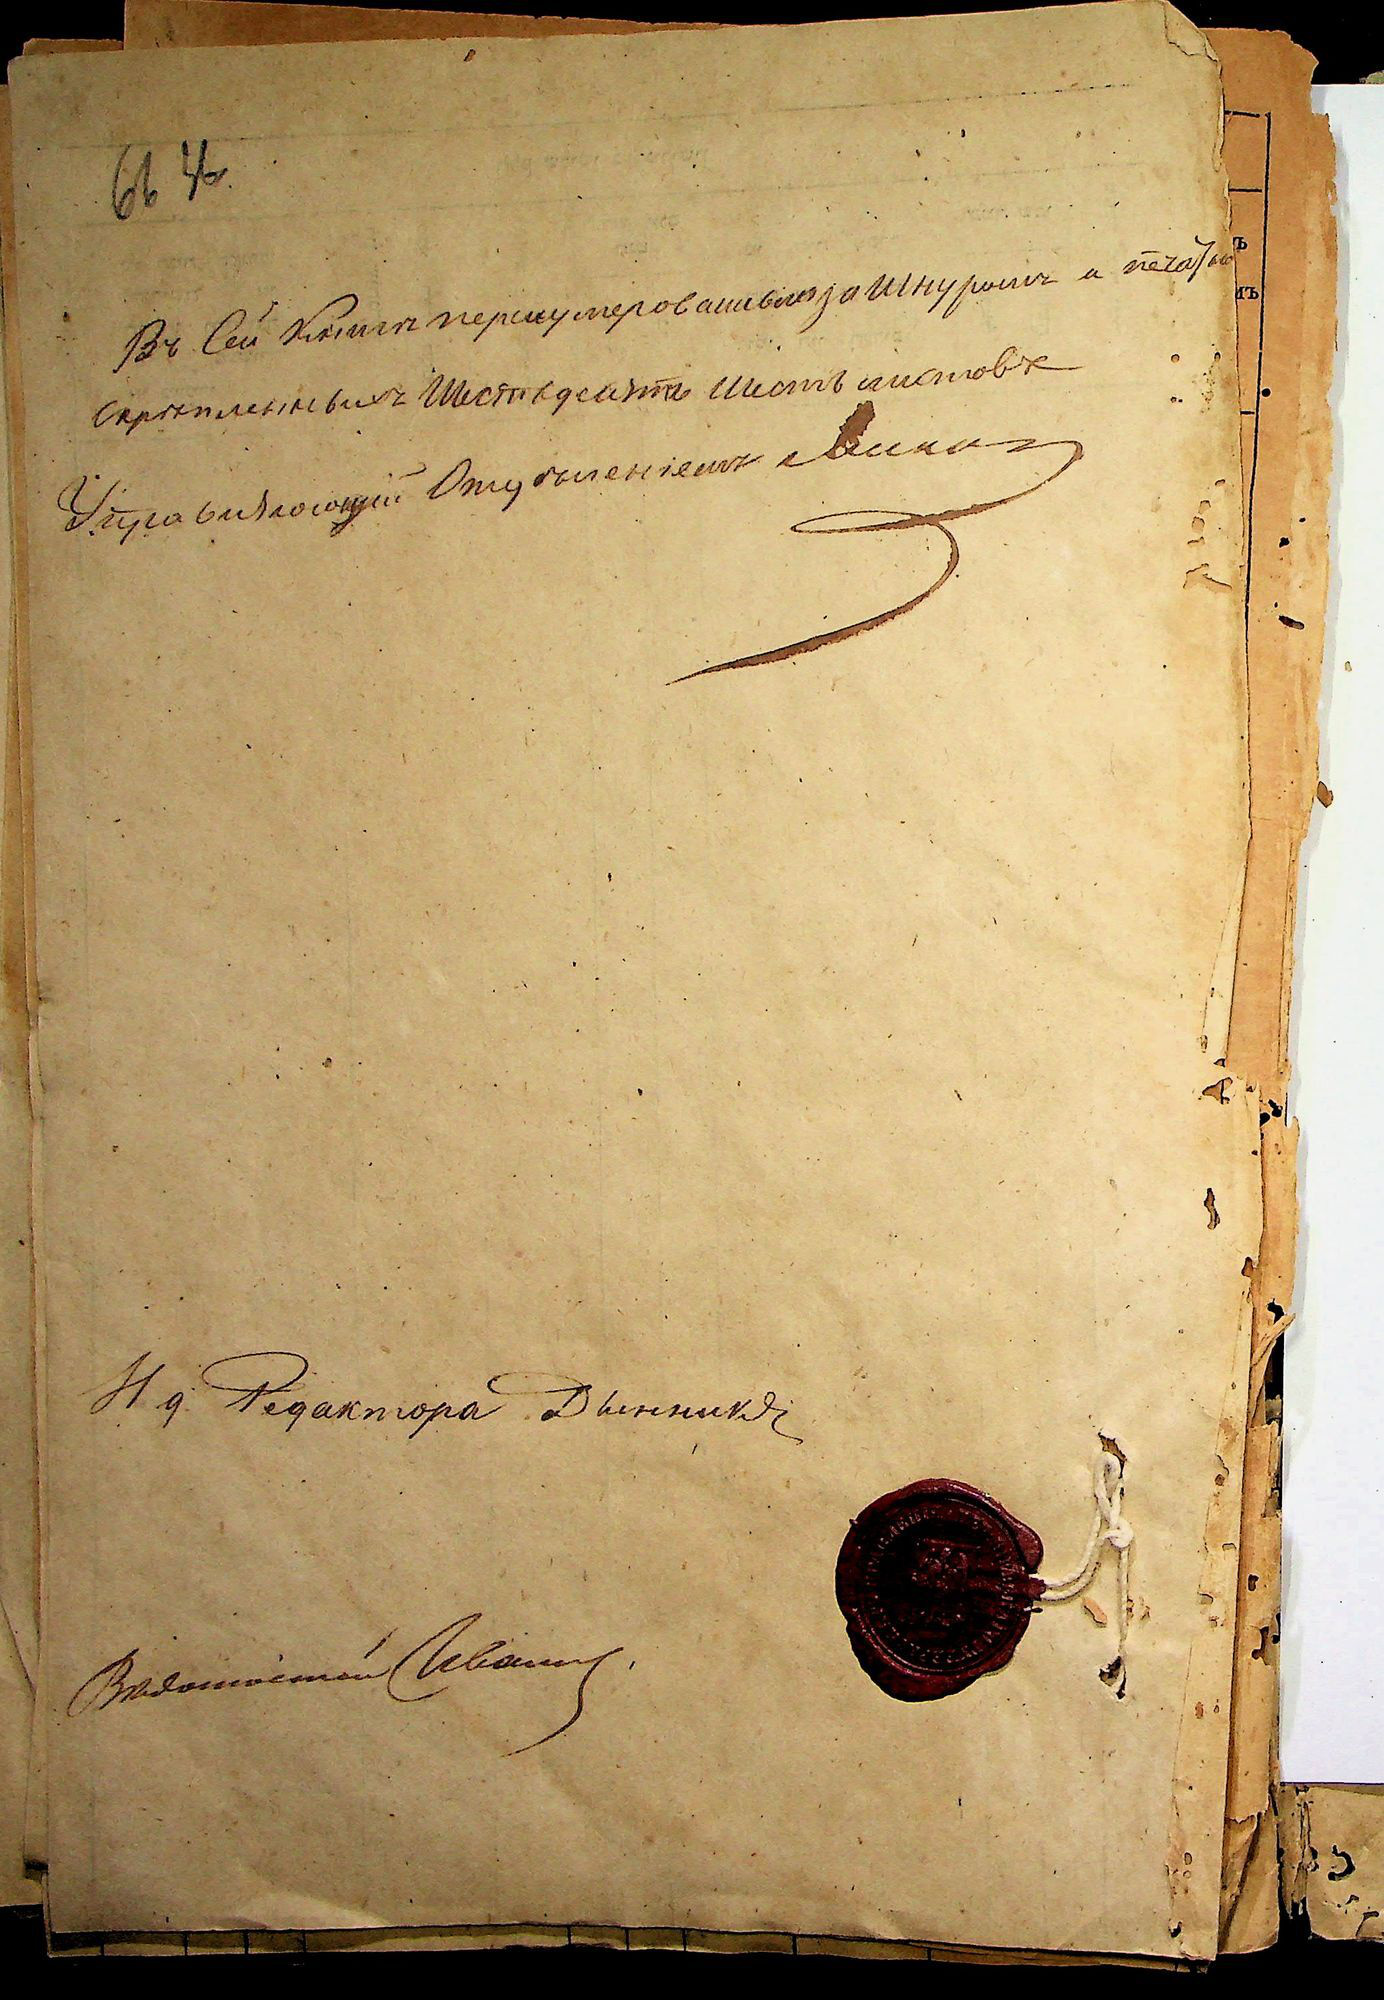 66
Въ Сей Книгѣ перенумерованныхъ за Шнуромъ и печатью
скрѣпленныхъ Шестьдесятъ Шесть листовъ
Управляющій Отдѣленіемъ
И д Редактора Дынника
Вѣдомостей